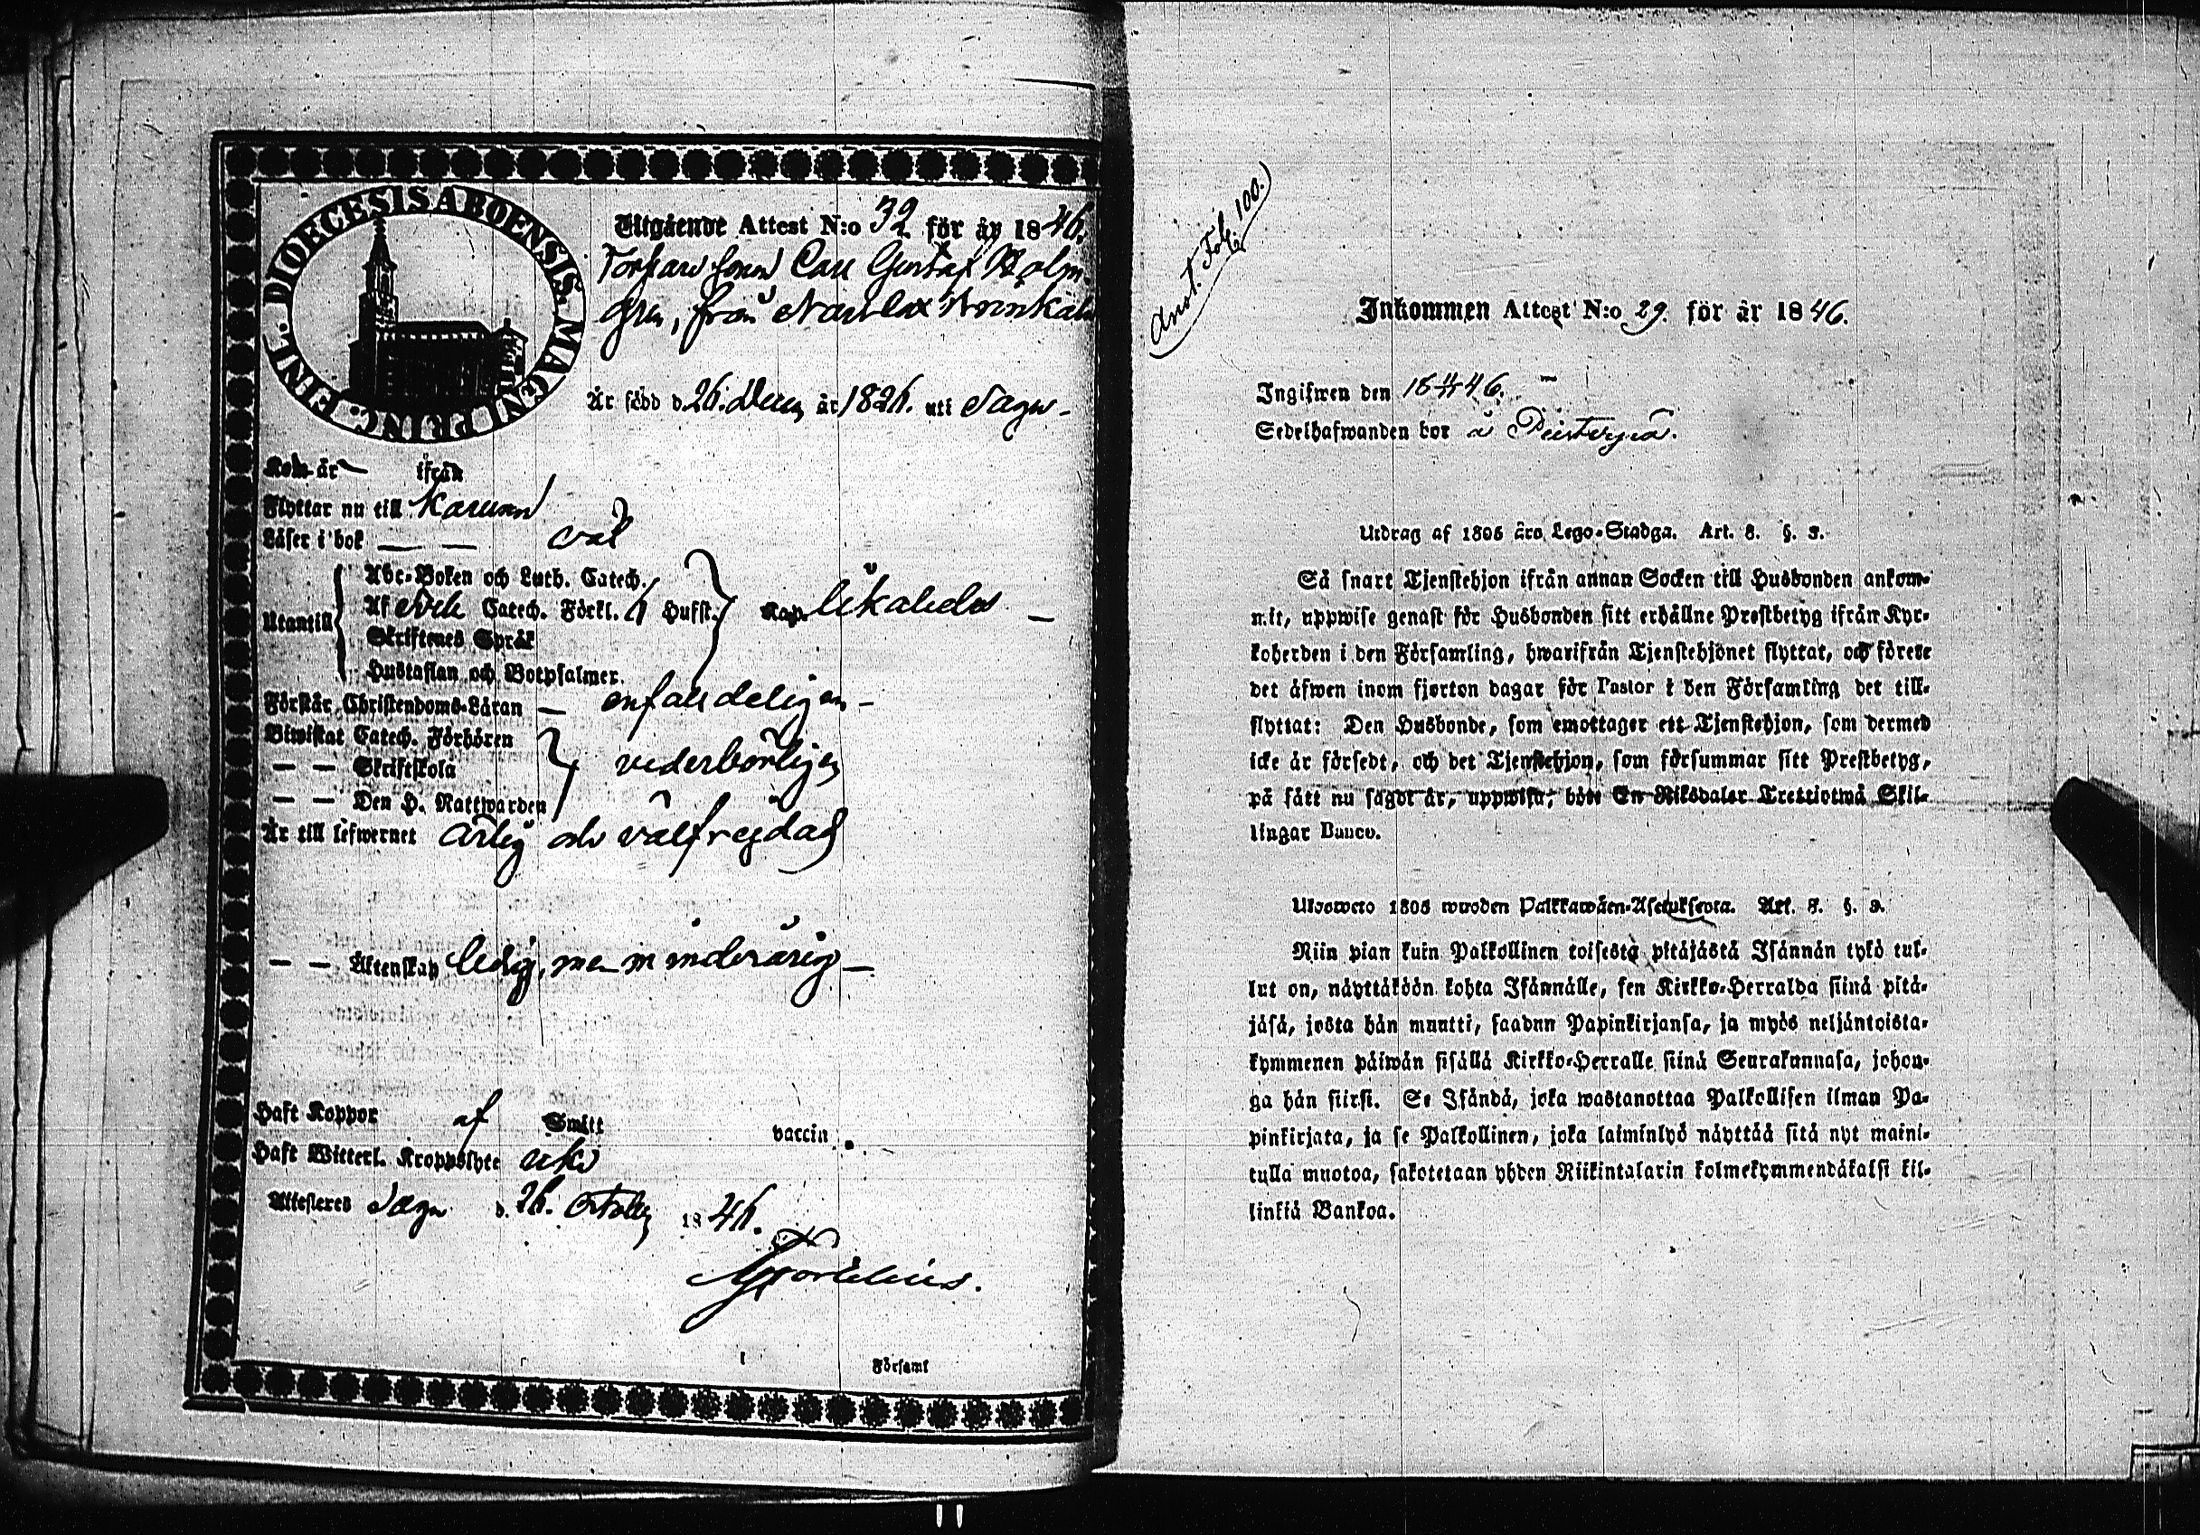 DIOECESIS ABOENSIS. MAGNI PRINC. FINL.
Utgående Attest N:o 32 för år 1846.
Torpare sonen Carl Gustaf Holm-
gren, från
Är född d. 26. Decemb. år 1826. uti Sagu –
Kom år — ifrån
Flyttar nu till Karuna
Läser i bok — — väl
Utantill
Abc-Boken och Luth. Catech.
Af Catech. Förkl. Husfl. Kap. likaledes —
Skriftenes Språk
Hustaflan och Botpsalmer.
Förstår Christendoms-Läran — enfaldeligen –
Biwistat Catech. Förhören
— — Skriftskola vederbörligen
— — Den H. Nattwarden
Är till lefwernet ärlig och välfrejdad
— — Äktenskap ledig, men minderårig —
Haft Koppor af Smitt vaccin.
Haft Witterl. Kroppslyte icke
Attesteres Sagu d. 26. Octob. 1846.
Församl
Anot. Fol. 100.
Inkommen Attest N:o 29. för år 1846.
Ingifwen den 18 46.
Sedelhafwanden bor å
Utdrag af 1805 års Lego-Stadga. Art. 8. §. 3.
Så snart Tjenstehjon ifrån annan Socken till Husbonden ankom-
mit, uppwise genast för Husbonden sitt erhållne Prestbetyg ifrån Kyr-
koherden i den Församling, hwarifrån Tjenstehjonet flyttat, och förete
det äfwen inom fjorton dagar för Pastor i den Församling det till-
flyttat: Den Husbonde, som emottager ett Tjenstehjon, som dermed
icke är försedt, och det Tjenstehjon, som försummar sitt Prestbetyg,
på sätt nu sagdt är, uppwisa, böte En Riksdaler Trettiotwå Skil-
lingar Banco.
Ulosweto 1805 wuoden Palkkawäen-Asetuksesta. Art. 8. §. 3.
Niin pian kuin Palkollinen toisesta pitäjästä Isännän tykö tul-
lut on, näyttäköön kohta Isännälle, sen Kirkko-Herralda siinä pitä-
jäsä, josta hän muutti, saadun Papinkirjansa, ja myös neljäntoista-
kymmenen päiwän sisällä Kirkko-Herralle siinä Seurakunnasa, johon-
ga hän siirsi. Se Isändä, joka wastanottaa Palkollisen ilman Pa-
pinkirjata, ja se Palkollinen, joka laiminlyö näyttää sitä nyt maini-
tulla muotoa, sakotetaan yhden Riikintalarin kolmekymmendäkaksi kil-
linkiä Bankoa.